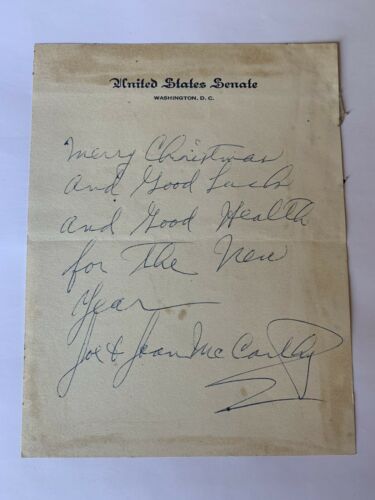 United States Senate
WASHINGTON, D. C.
Merry Christmas
and Good Luck
and Good Health
for The New
Year
Joe & Jean McCarthy